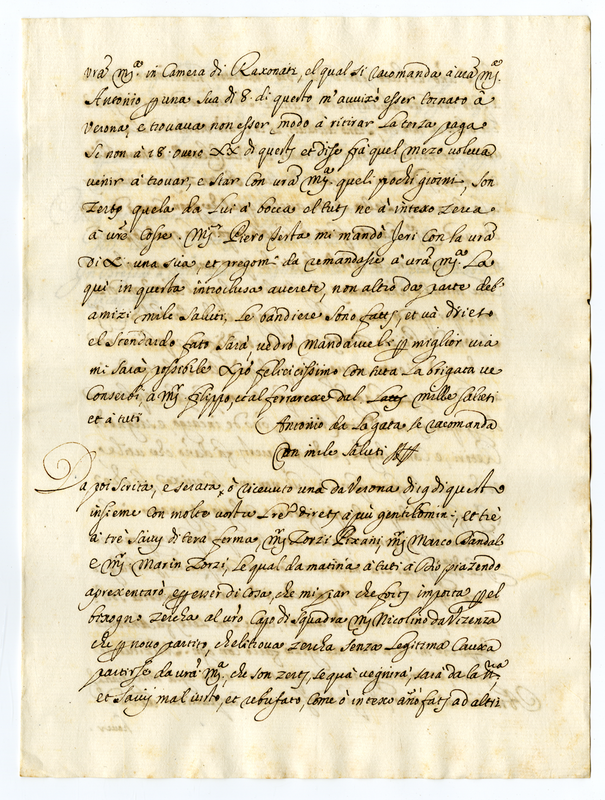 vrã Mã. in Camera di Raxonati, el qual si racomanda à vrã Mã.
Antonio p una sua di 8. di questo m'auuixò esser tornato à
Verona, e trouaua non esser modo à ritirar la terza paga
se non à 18. ouero XX di questo et dise frà quel mezo voleua
venir à trouar, e star con vrã Mã queli pochi giorni, son
zerto quela da lui à bocca el tuto ne à intexo zerca
à vrẽ Cosse. Mr. Piero mi mandò Jeri con la vrã
di X. una sua, et pregomi da remandarse à vrã Mã. La
qui in questa introclusa auerete, non altro da parte deli
amizi mile saluti, le bandiere sono fatte, et và drieto
el stendardo fato sarà, vedrò mandaruele p miglior via
mi sarà possibile Xpõ felicicissimo con tuta la brigata ve
Conserui, à Mr Filippo, et al ferrarexe dal mille saluti
et à tuti Antonio da la gata se racomanda
Con mile saluti
Da poi scrita, e serata, ò riceuuto una da Verona di 9 di questo
insieme con molte volta lrẽ direte à più gentilomini, et trè
à trè Sauij di tera ferma, Mr Zorzi Pixani, Mr Marco Dandolo
e Mr Marin Zorzi, le qual da matina à tuti à Dio piazendo
aprexentarò, e p esser di cosa, che mi par che molto importa p el
bixogno zercha al vrõ Capo di squadra Mr Nicolino da Vizenza
che p nouo partito, che li troua zercha senza legitima Causa
partirse da vrã Mã, che son zerto, se quà vegnirà, sarà da la
et Sauij mal visto, et rebufato, come ò intexo año fato ad altri